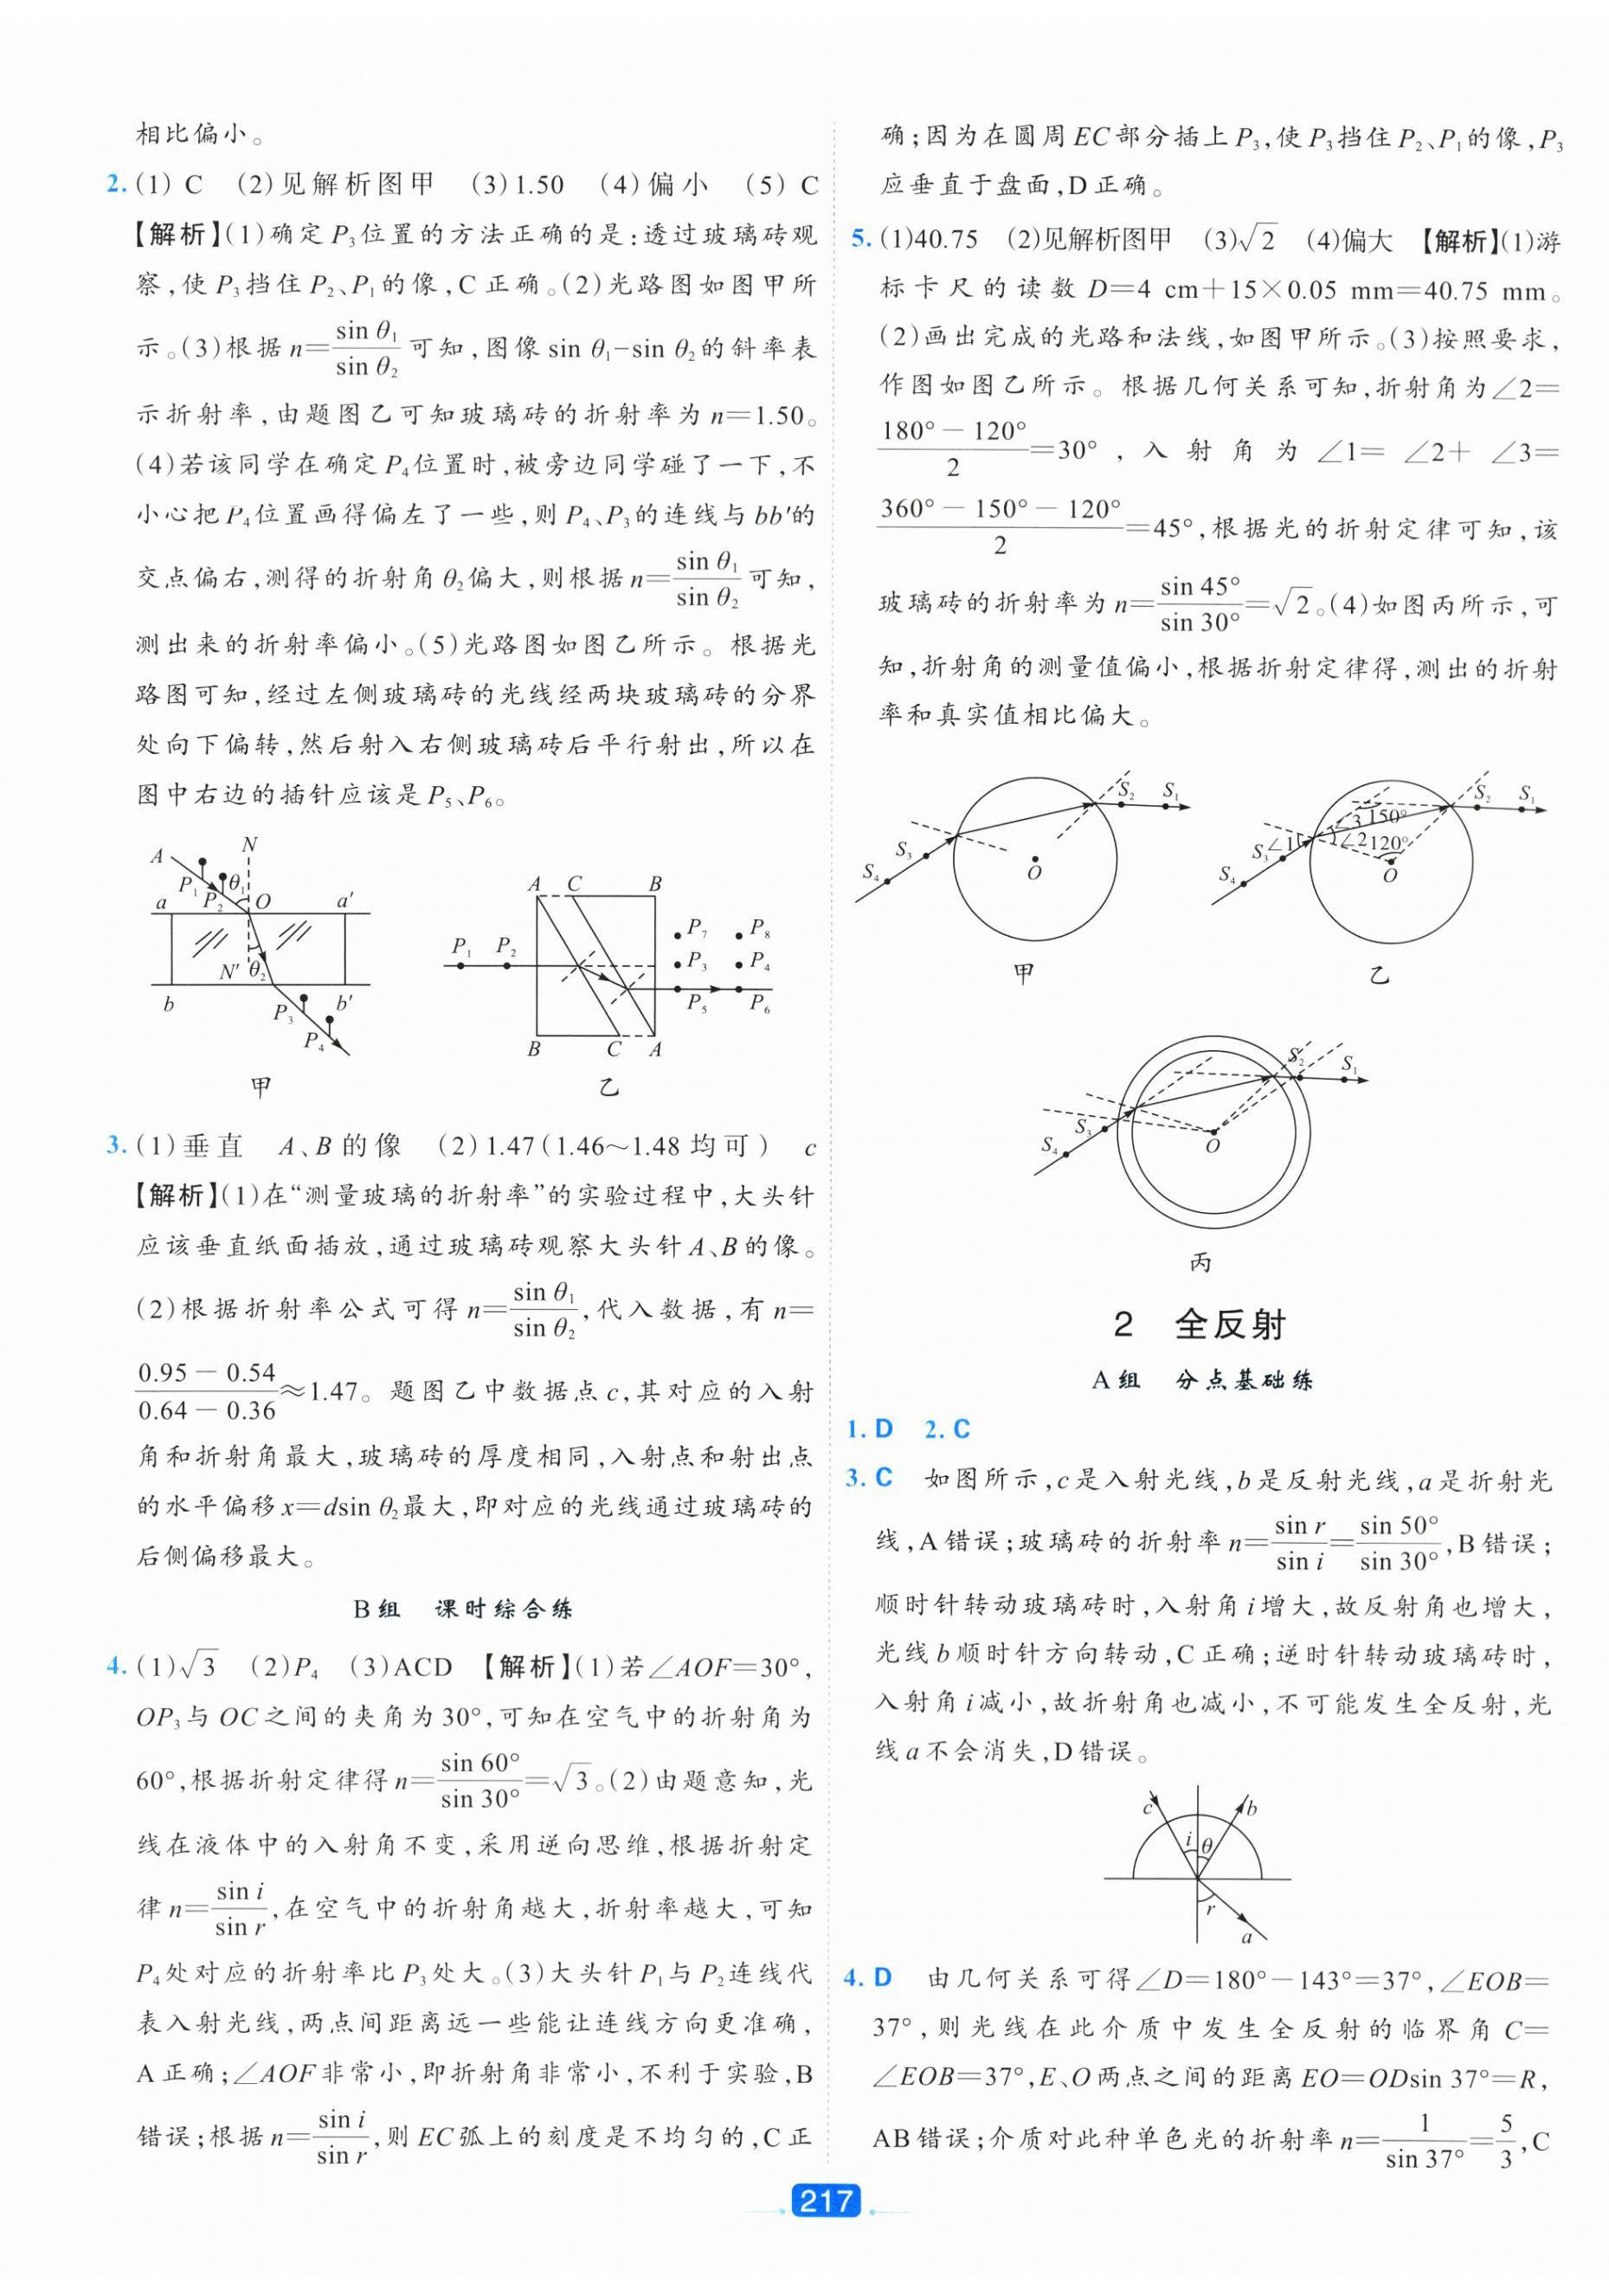 相比偏小。
2. (1) C (2)见解析图甲 (3)1.50 (4)偏小 (5) C
【解析】(1)确定P₃位置的方法正确的是:透过玻璃砖观
察,使P₃挡住P₂、P₁的像,C正确。(2)光路图如图甲所
示。(3)根据n=sin θ₁/sin θ₂可知,图像sin θ₁-sin θ₂的斜率表
示折射率,由题图乙可知玻璃砖的折射率为n=1.50。
(4)若该同学在确定P₄位置时,被旁边同学碰了一下,不
小心把P₄位置画得偏左了一些,则P₄、P₃的连线与bb′的
交点偏右,测得的折射角θ₂偏大,则根据n=sin θ₁/sin θ₂可知,
测出来的折射率偏小。(5)光路图如图乙所示。根据光
路图可知,经过左侧玻璃砖的光线经两块玻璃砖的分界
处向下偏转,然后射入右侧玻璃砖后平行射出,所以在
图中右边的插针应该是P₅、P₆。
A N P₁ P₂ θ₁ O a a′ N′ θ₂ b b′ P₃ P₄
甲
A C B P₁ P₂ P₇ P₈ P₃ P₄ P₅ P₆ B C A
乙
3. (1)垂直 A、B的像 (2)1.47(1.46~1.48均可) c
【解析】(1)在“测量玻璃的折射率”的实验过程中,大头针
应该垂直纸面插放,通过玻璃砖观察大头针A、B的像。
(2)根据折射率公式可得n=sin θ₁/sin θ₂,代入数据,有n=
(0.95-0.54)/(0.64-0.36)≈1.47。题图乙中数据点c,其对应的入射
角和折射角最大,玻璃砖的厚度相同,入射点和射出点
的水平偏移x=dsin θ₂最大,即对应的光线通过玻璃砖的
后侧偏移最大。
B组 课时综合练
4. (1)√3 (2)P₄ (3)ACD 【解析】(1)若∠AOF=30°,
OP₃与OC之间的夹角为30°,可知在空气中的折射角为
60°,根据折射定律得n=sin 60°/sin 30°=√3。(2)由题意知,光
线在液体中的入射角不变,采用逆向思维,根据折射定
律n=sin i/sin r,在空气中的折射角越大,折射率越大,可知
P₄处对应的折射率比P₃处大。(3)大头针P₁与P₂连线代
表入射光线,两点间距离远一些能让连线方向更准确,
A正确;∠AOF非常小,即折射角非常小,不利于实验,B
错误;根据n=sin i/sin r,则EC弧上的刻度是不均匀的,C正
确;因为在圆周EC部分插上P₃,使P₃挡住P₂、P₁的像,P₃
应垂直于盘面,D正确。
5. (1)40.75 (2)见解析图甲 (3)√2 (4)偏大 【解析】(1)游
标卡尺的读数D=4 cm+15×0.05 mm=40.75 mm。
(2)画出完成的光路和法线,如图甲所示。(3)按照要求,
作图如图乙所示。根据几何关系可知,折射角为∠2=
(180°-120°)/2=30°,入射角为∠1=∠2+∠3=
(360°-150°-120°)/2=45°,根据光的折射定律可知,该
玻璃砖的折射率为n=sin 45°/sin 30°=√2。(4)如图丙所示,可
知,折射角的测量值偏小,根据折射定律得,测出的折射
率和真实值相比偏大。
S₂ S₁ S₃ S₄ O
甲
S₂ S₁ ∠3 150° ∠1 ∠2 120° S₃ S₄ O
乙
S₂ S₁ S₃ S₄ O
丙
2 全反射
A组 分点基础练
1. D 2. C
3. C 如图所示,c是入射光线,b是反射光线,a是折射光
线,A错误;玻璃砖的折射率n=sin r/sin i=sin 50°/sin 30°,B错误;
顺时针转动玻璃砖时,入射角i增大,故反射角也增大,
光线b顺时针方向转动,C正确;逆时针转动玻璃砖时,
入射角i减小,故折射角也减小,不可能发生全反射,光
线a不会消失,D错误。
c b i θ r a
4. D 由几何关系可得∠D=180°-143°=37°,∠EOB=
37°,则光线在此介质中发生全反射的临界角C=
∠EOB=37°,E、O两点之间的距离EO=ODsin 37°=R,
AB错误;介质对此种单色光的折射率n=1/sin 37°=5/3,C
217